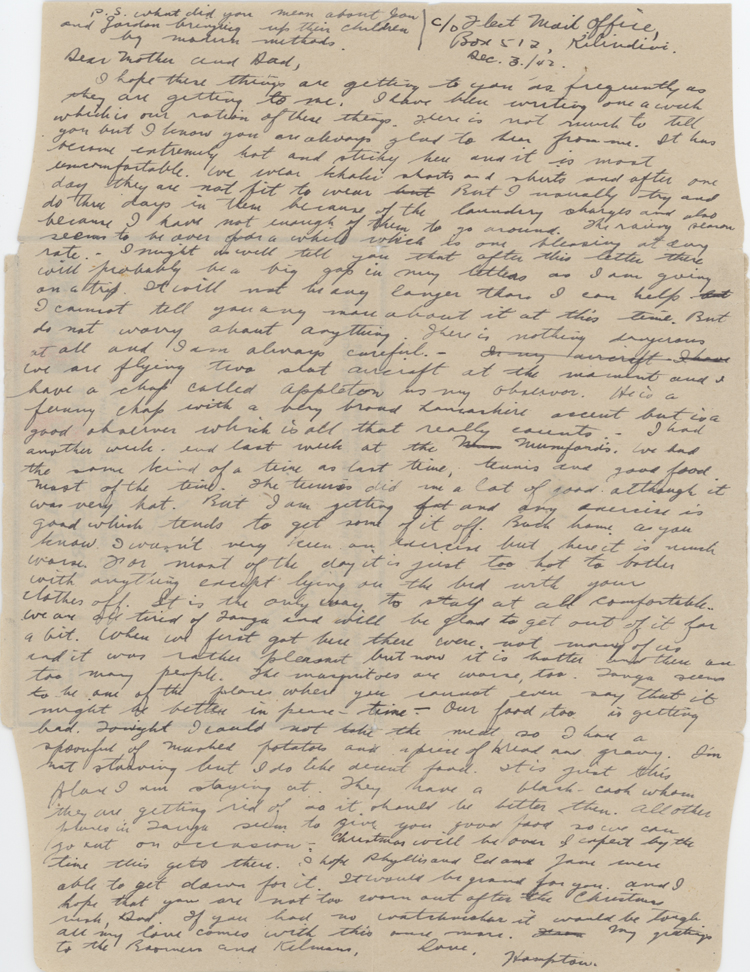 P.S. what did you mean about Jon
and Gordon bringing up their children
by modern methods.
c/o Fleet Mail Office,
Box 512, Kilindini.
Dec. 3./42.
Dear Mother and Dad,
I hope these things are getting to you as frequently as
they are getting to me. I have been writing one a week
which is our ration of these things. There is not much to tell
you but I know you are always glad to hear from me. It has
become extremely hot and sticky here and it is most
uncomfortable. We wear khaki shorts and shirts and after one
day they are not fit to wear but But I usually try and
do three days in them because of the laundry charges and also
because I have not enough of them to go around. The rainy season
seems to be over for a while which is one blessing at any
rate. - I might as well tell you that after this letter there
will probably be a big gap in my letters as I am going
on a trip. It will not be any longer than I can help but
I cannot tell you any more about it at this time. But
do not worry about anything. There is nothing dangerous
at all and I am always careful. - In my aircraft I have
we are flying two seat aircraft at the moment and I
have a chap called Appleton as my observer. He is a
funny chap with a very broad Lancashire accent but is a
good observer which is all that really counts - I had
another week-end last week at the Mumfords. We had
the same kind of a time as last time, tennis and good food
most of the time. The tennis did me a lot of good although it
was very hot. But I am getting fat and any exercise is
good which tends to get some of it off. Back home as you
know I wasn't very keen on exercise but here it is much
worse. For most of the day it is just too hot to bother
with anything except lying on the bed with your
clothes off. It is the only way to stay at all comfortable.
We are all tired of Tanga and will be glad to get out of it for
a bit. When we first got here there were not many of us
and it was rather pleasant but now it is hotter and there are
too many people. The mosquitoes are worse, too. Tanga seems
to be one of the places where you cannot even say that it
might be better in peace-time - Our food, too is getting
bad. Tonight I could not take the meat so I had a
spoonful of mashed potatoes and a piece of bread and gravy. I'm
not starving but I do like decent food. It is just this
place I am staying at. They have a black cook whom
they are getting rid of so it should be better then. All other
places in Tanga seem to give you good food so we can
go out on occasion - Christmas will be over I expect by the
time this gets there. I hope Phyllis and Ed and Jane were
able to get down for it. It would be grand for you. and I
hope that you are not too worn out after the Christmas
rush, Dad. If you had no watchmaker it would be tough
all my love comes with this once more. My greetings
to the Boomers and Kelmans,
Love,
Hampton.